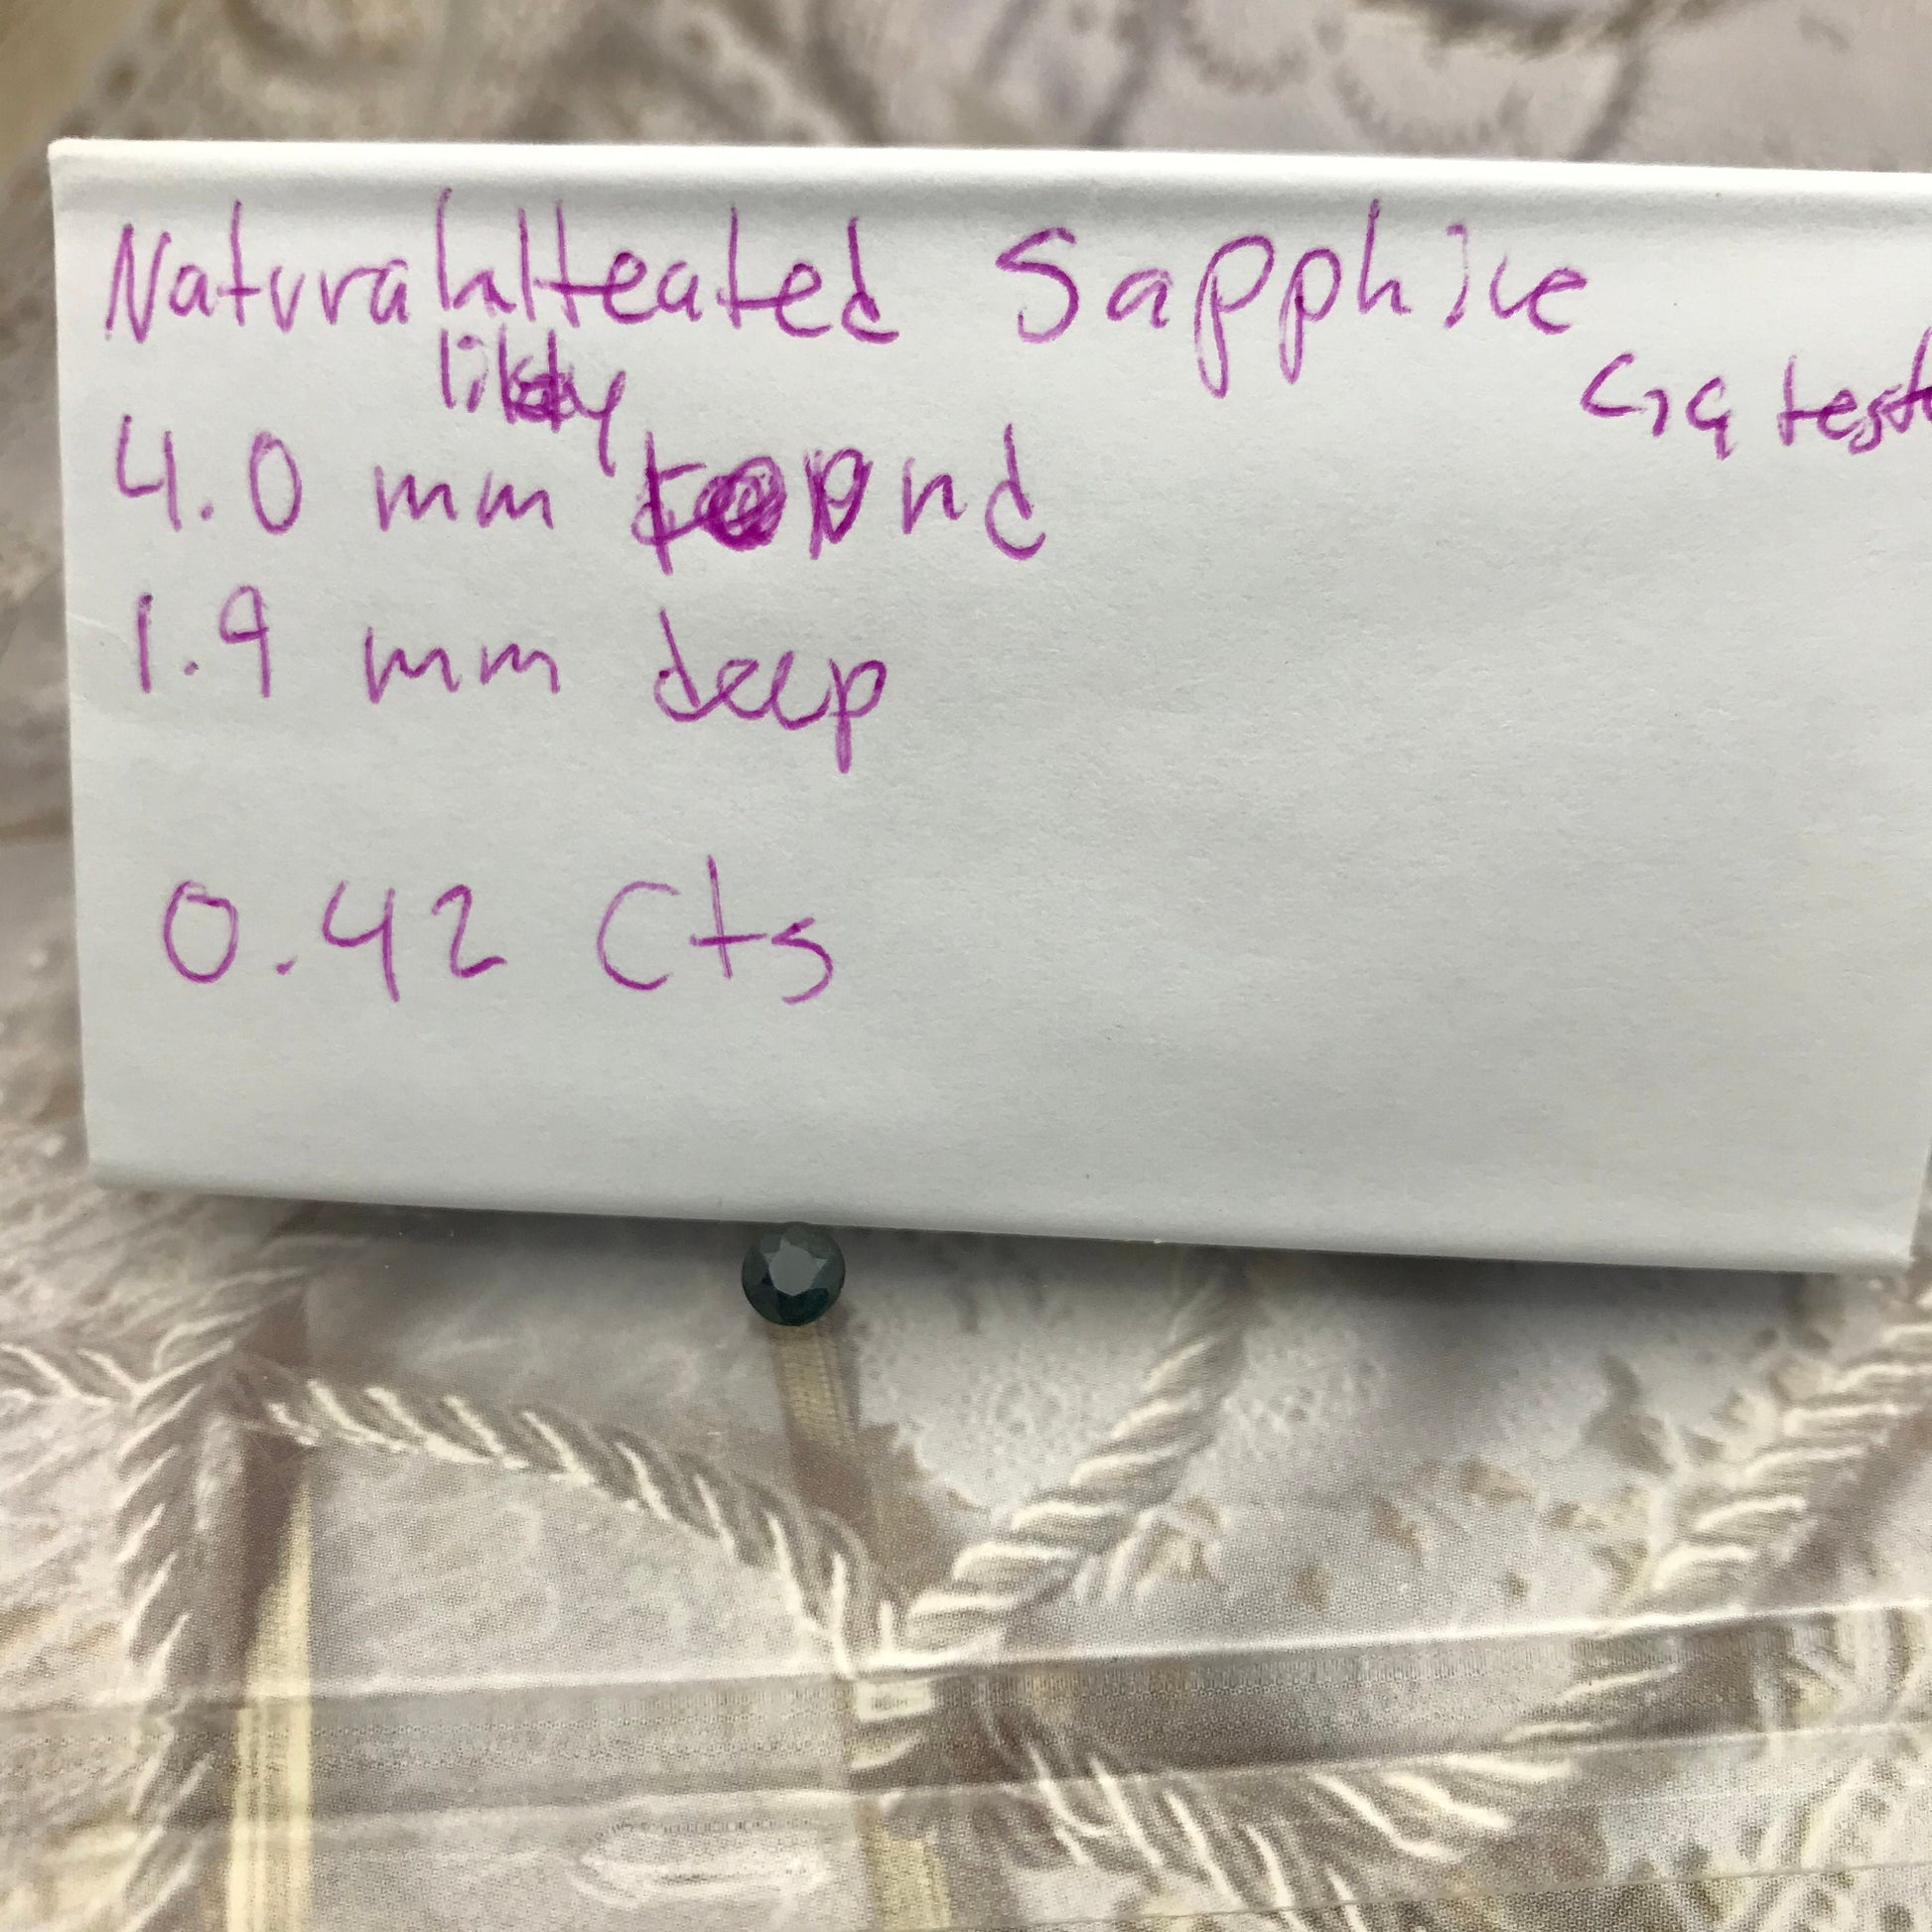 Natural Heated Sapphire
likely
Gia test
4.0 mm round
1.9 mm deep
0.42 Cts